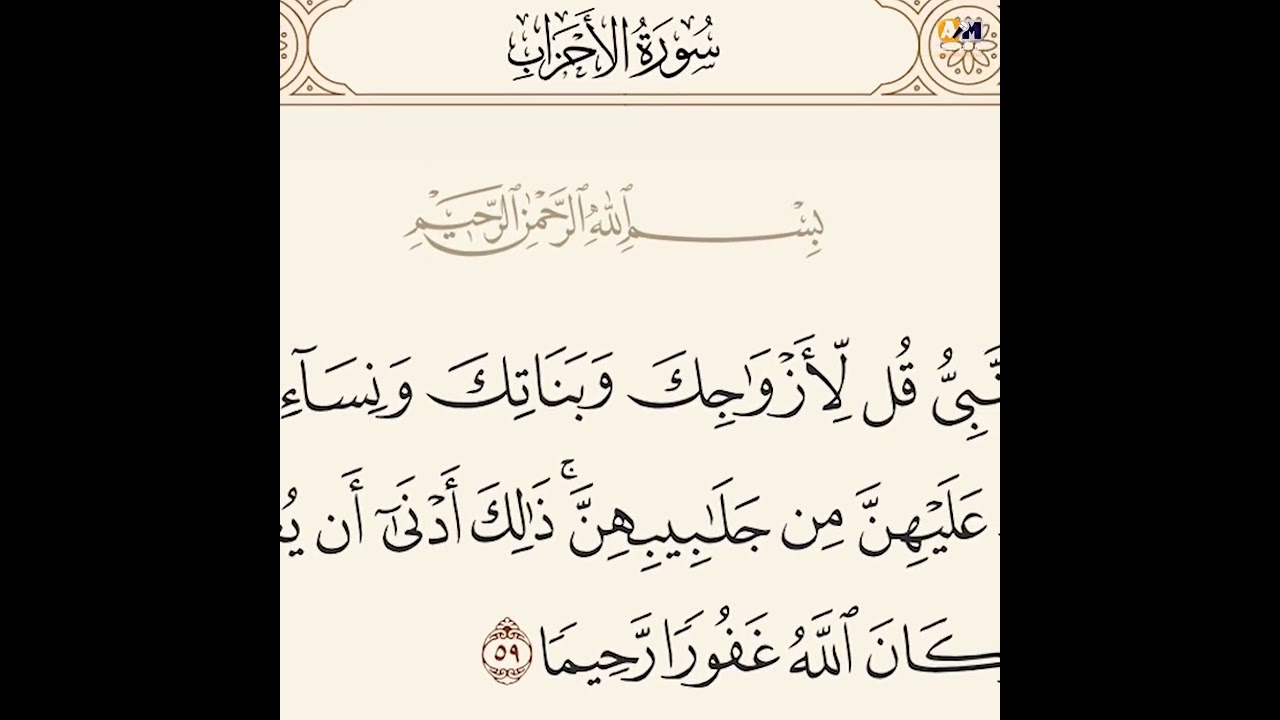 سُورَةُ الأَحْزَابِ
AM
بِسْمِ ٱللَّهِ ٱلرَّحْمَٰنِ ٱلرَّحِيمِ
نَّبِىُّ قُل لِّأَزْوَٰجِكَ وَبَنَاتِكَ وَنِسَآءِ
عَلَيْهِنَّ مِن جَلَٰبِيبِهِنَّ ۚ ذَٰلِكَ أَدْنَىٰٓ أَن يُعْ
كَانَ ٱللَّهُ غَفُورًا رَّحِيمًا ٥٩